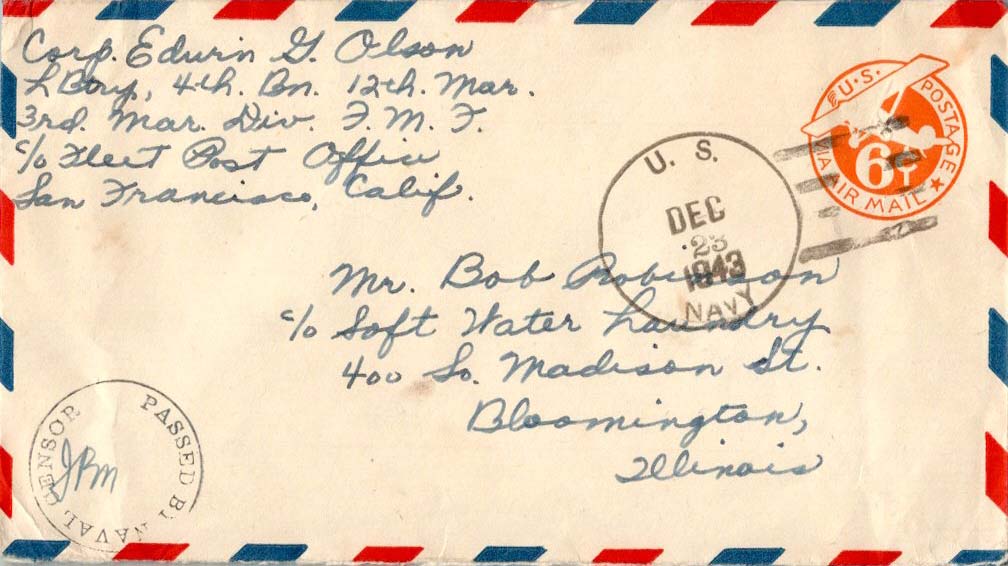 Corp. Edwin G. Olson
L Btry, 4th. Bn. 12th. Mar.
3rd. Mar. Div. F. M. F.
c/o Fleet Post Office
San Francisco, Calif.
U.S. POSTAGE
6¢
VIA AIR MAIL
U. S.
DEC
23
1943
NAVY
Mr. Bob Robinson
c/o Soft Water Laundry
400 So. Madison St.
Bloomington,
Illinois
PASSED BY NAVAL CENSOR